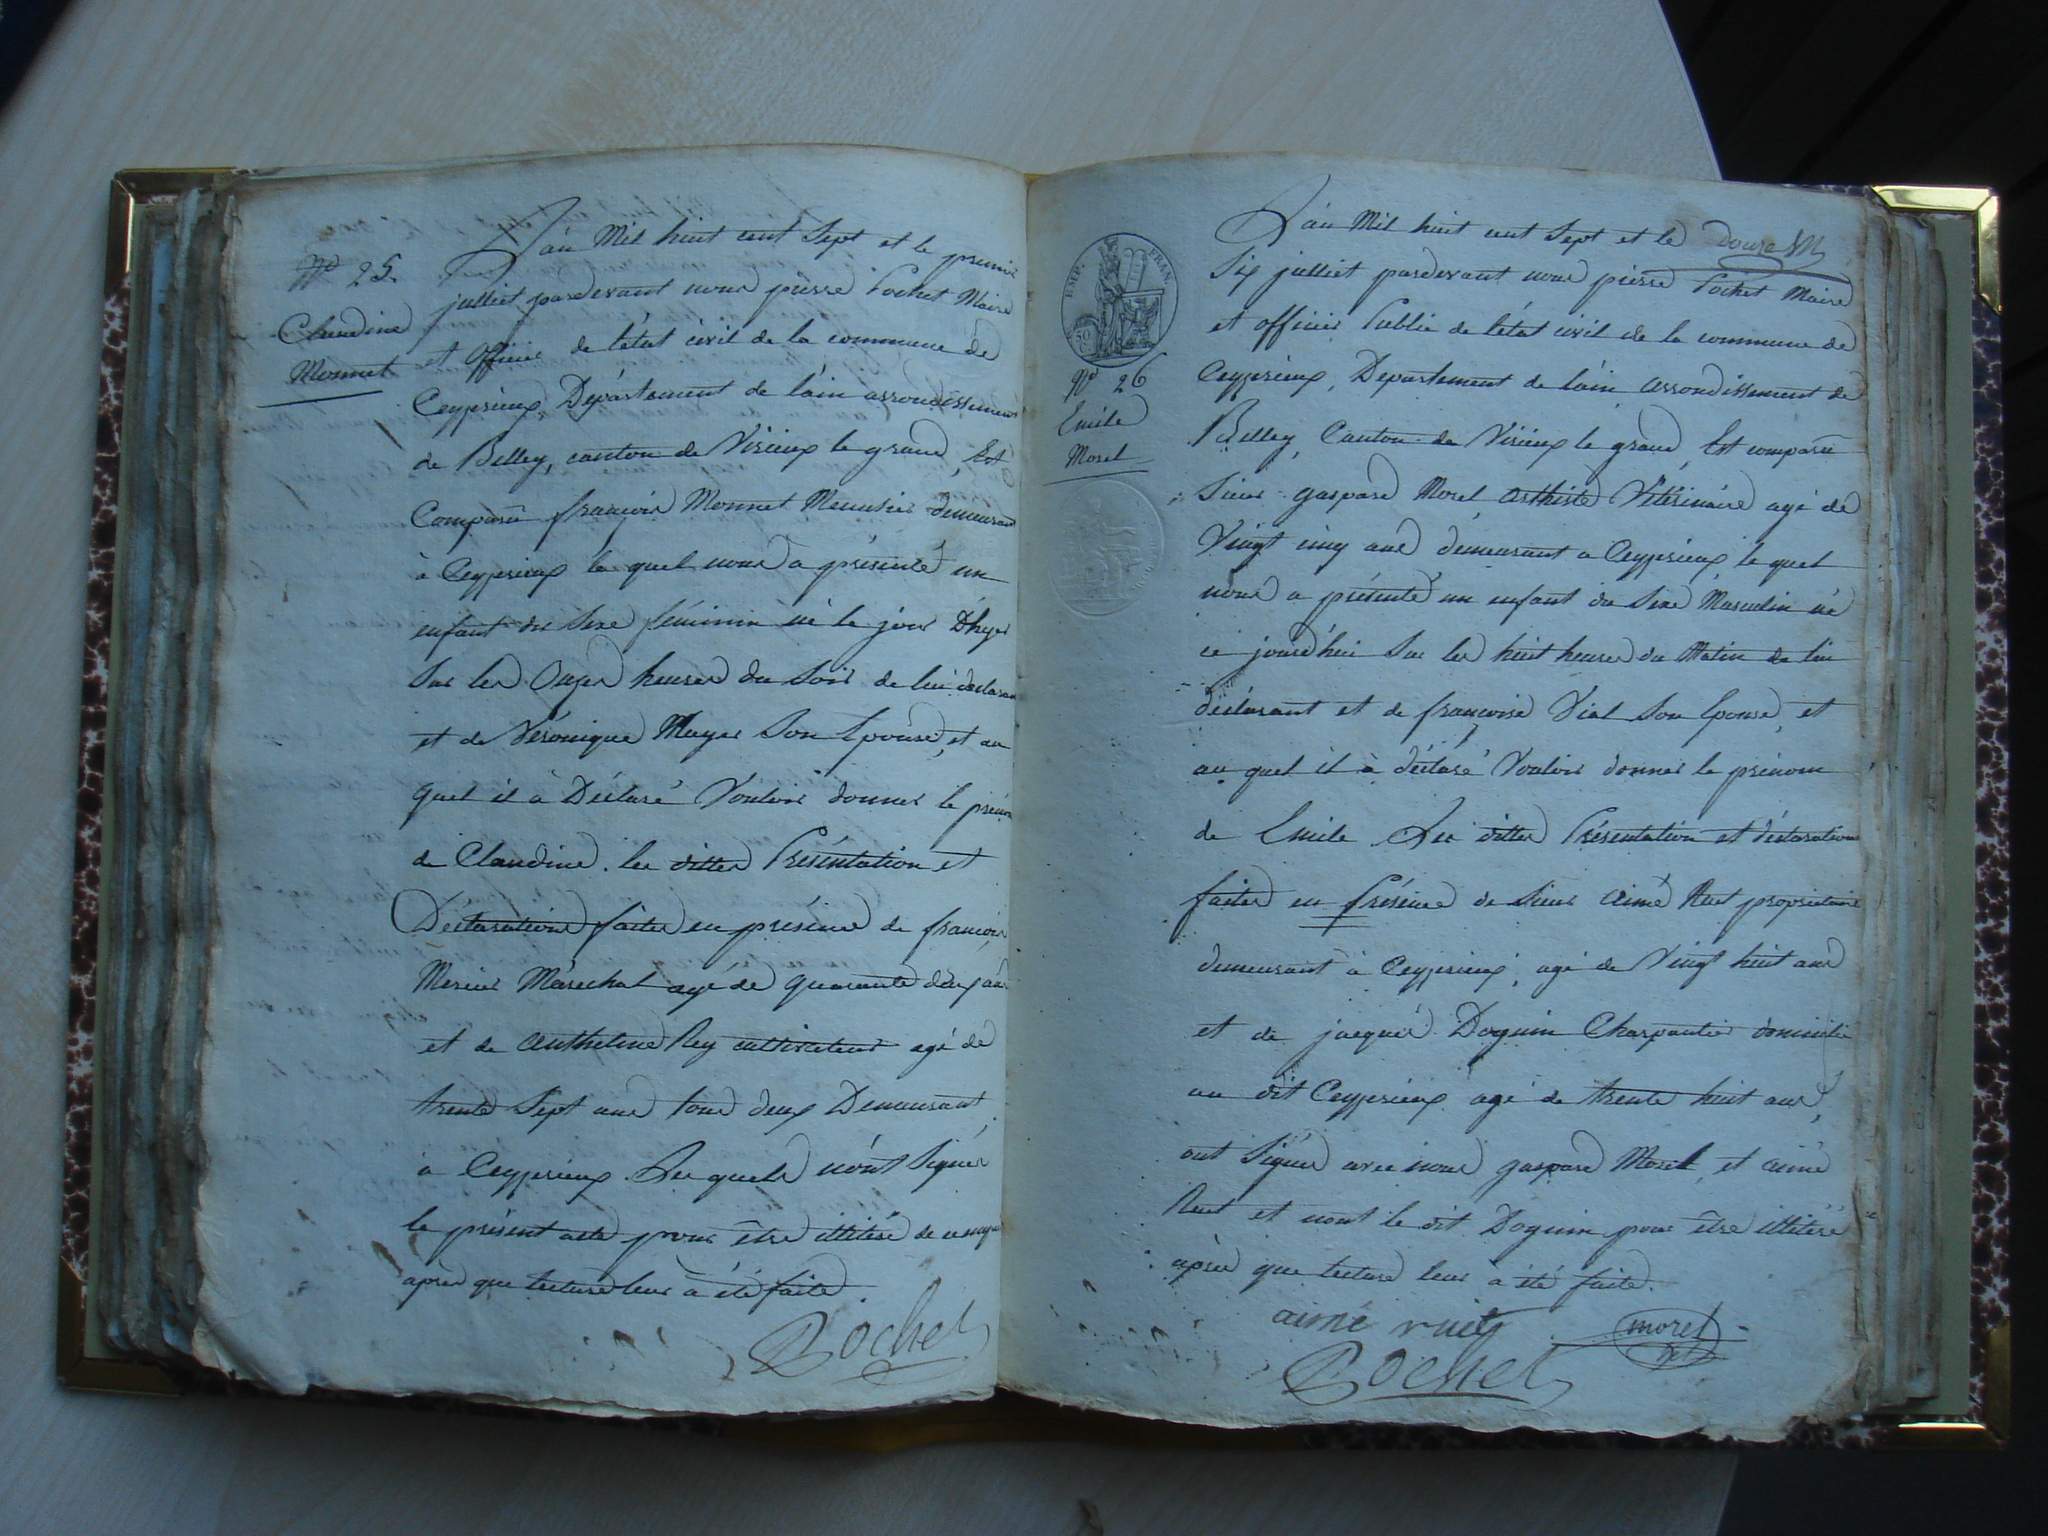 Nº 25.
Claudine
Monnet
L'an Mil huit cent Sept et le premier
juilliet pardevant nous pierre Pochet Maire
et officier de l'état civil de la commune de
Ceyzerieux, Département de l'ain arrondissement
de Belley, canton de Virieux le grand, Est
Comparû françois Monnet Menusier demeurant
à Ceyzerieux le quel nous a présenté un
enfant du Sexe féminin né le jour D'hyer
Sur les Onzes heures du Soir de lui déclarant
et de Véronique Mayer Son Epouse, et au
quel il à Déclaré Vouloir donner le prénom
de Claudine. les dittes Présentation et
Déclarations faites en présence de françois
Mercier Maréchal agé de quarante deux ans
et de Anthelme Rey cultivateur agé de
trente Sept ans tous deux Demeurant
à Ceyzerieux Les quels n'ont Signés
le présent acte pour être illitéré de ce enquis
après que lecture leur à été faite.
Pochet
EMP. FRAN.
50
Nº 26
Emile
Morel
L'an Mil huit cent Sept et le douze
Six juilliet pardevant nous pierre Pochet Maire
et officier Public de l'état civil de la commune de
Ceyzerieux, Departement de l'ain arrondissement de
Belley, Canton de Virieux le grand, Est comparû
Sieur gaspard Morel arthiste Vétérinaire agé de
Vingt cinq ans demeurant a Ceyzerieux le quel
nous a présenté un enfant du Sexe Masculin né
ce jourd'hui Sur les huit heures du Matin de lui
déclarant et de françoise Vial Son Epouse, et
au quel il à déclaré Vouloir donner le prénom
de Emile Les dittes Présentation et déclarations
faites en présence de Sieur Aimé Ruet propriétaire
demeurant à Ceyzerieux, agé de Vingt huit ans
et de jacques Doguin Charpantier domicilié
au dit Ceyzerieux agé de trente huit ans,
ont Signés avec nous gaspard Morel, et aimé
Ruet et nont le dit Doguin pour être illitéré
après que lecture leur à été faite.
aimé ruet
morel
Pochet